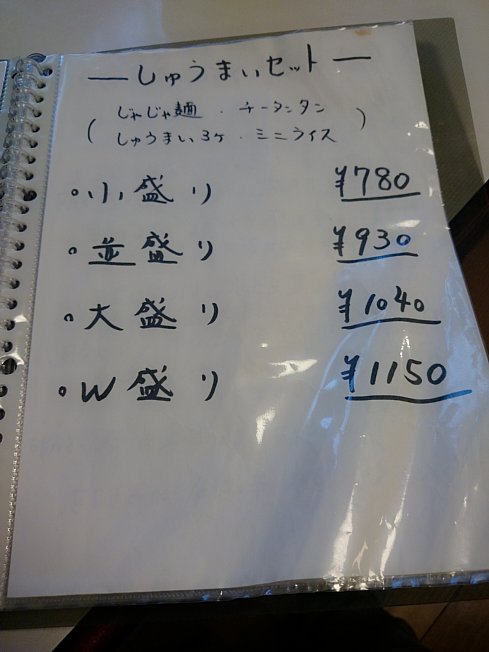 ーしゅうまいセットー
(じゃじゃ麺・チータンタン
しゅうまい3ケ・ミニライス)
。小盛り ¥780
。並盛り ¥930
。大盛り ¥1040
。W盛り ¥1150